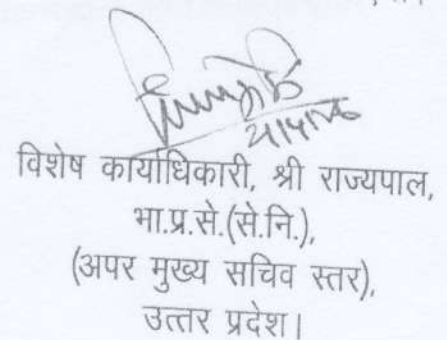 विशेष कार्याधिकारी, श्री राज्यपाल,
भा.प्र.से.(से.नि.),
(अपर मुख्य सचिव स्तर),
उत्तर प्रदेश।